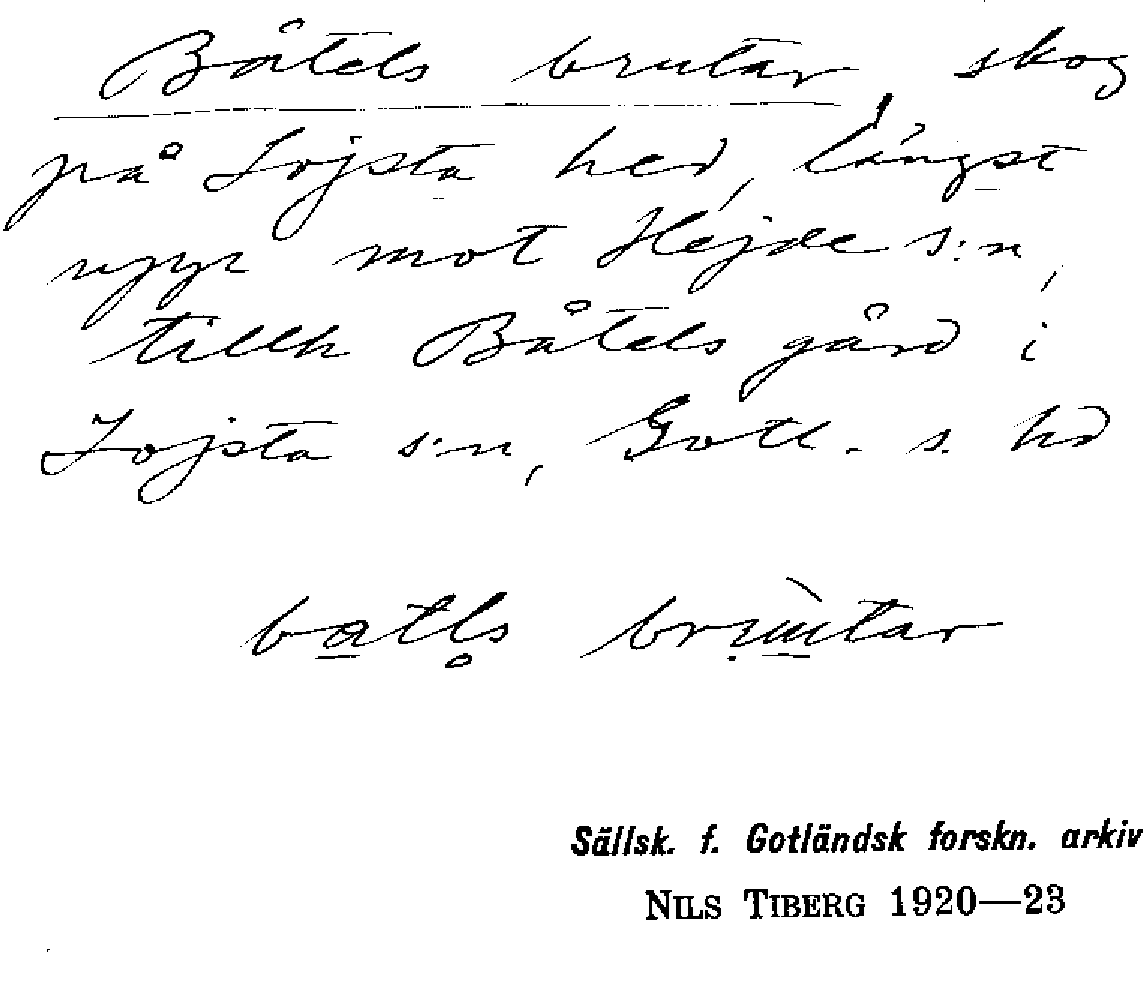 Båtels brutar, skog
på Lojsta hed, längst
upp mot Hejde s:n,
tillh Båtels gård i
Lojsta s:n, Gotl. s. hd
Sällsk. f. Gotländsk forskn. arkiv
NILS TIBERG 1920—23